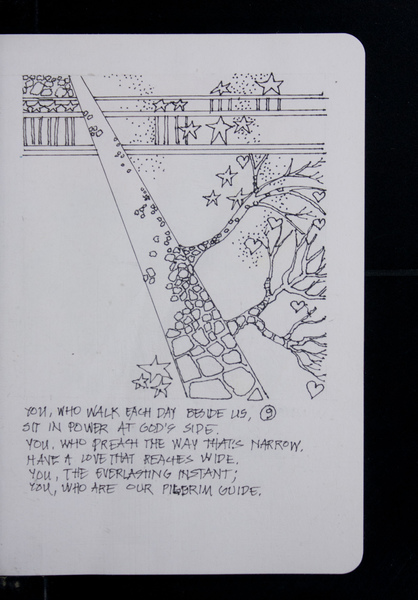 YOU, WHO WALK EACH DAY BESIDE US, 9
SIT IN POWER AT GOD'S SIDE.
YOU, WHO PREACH THE WAY THAT'S NARROW.
HAVE A LOVE THAT REACHES WIDE.
YOU, THE EVERLASTING INSTANT;
YOU, WHO ARE OUR PILGRIM GUIDE.